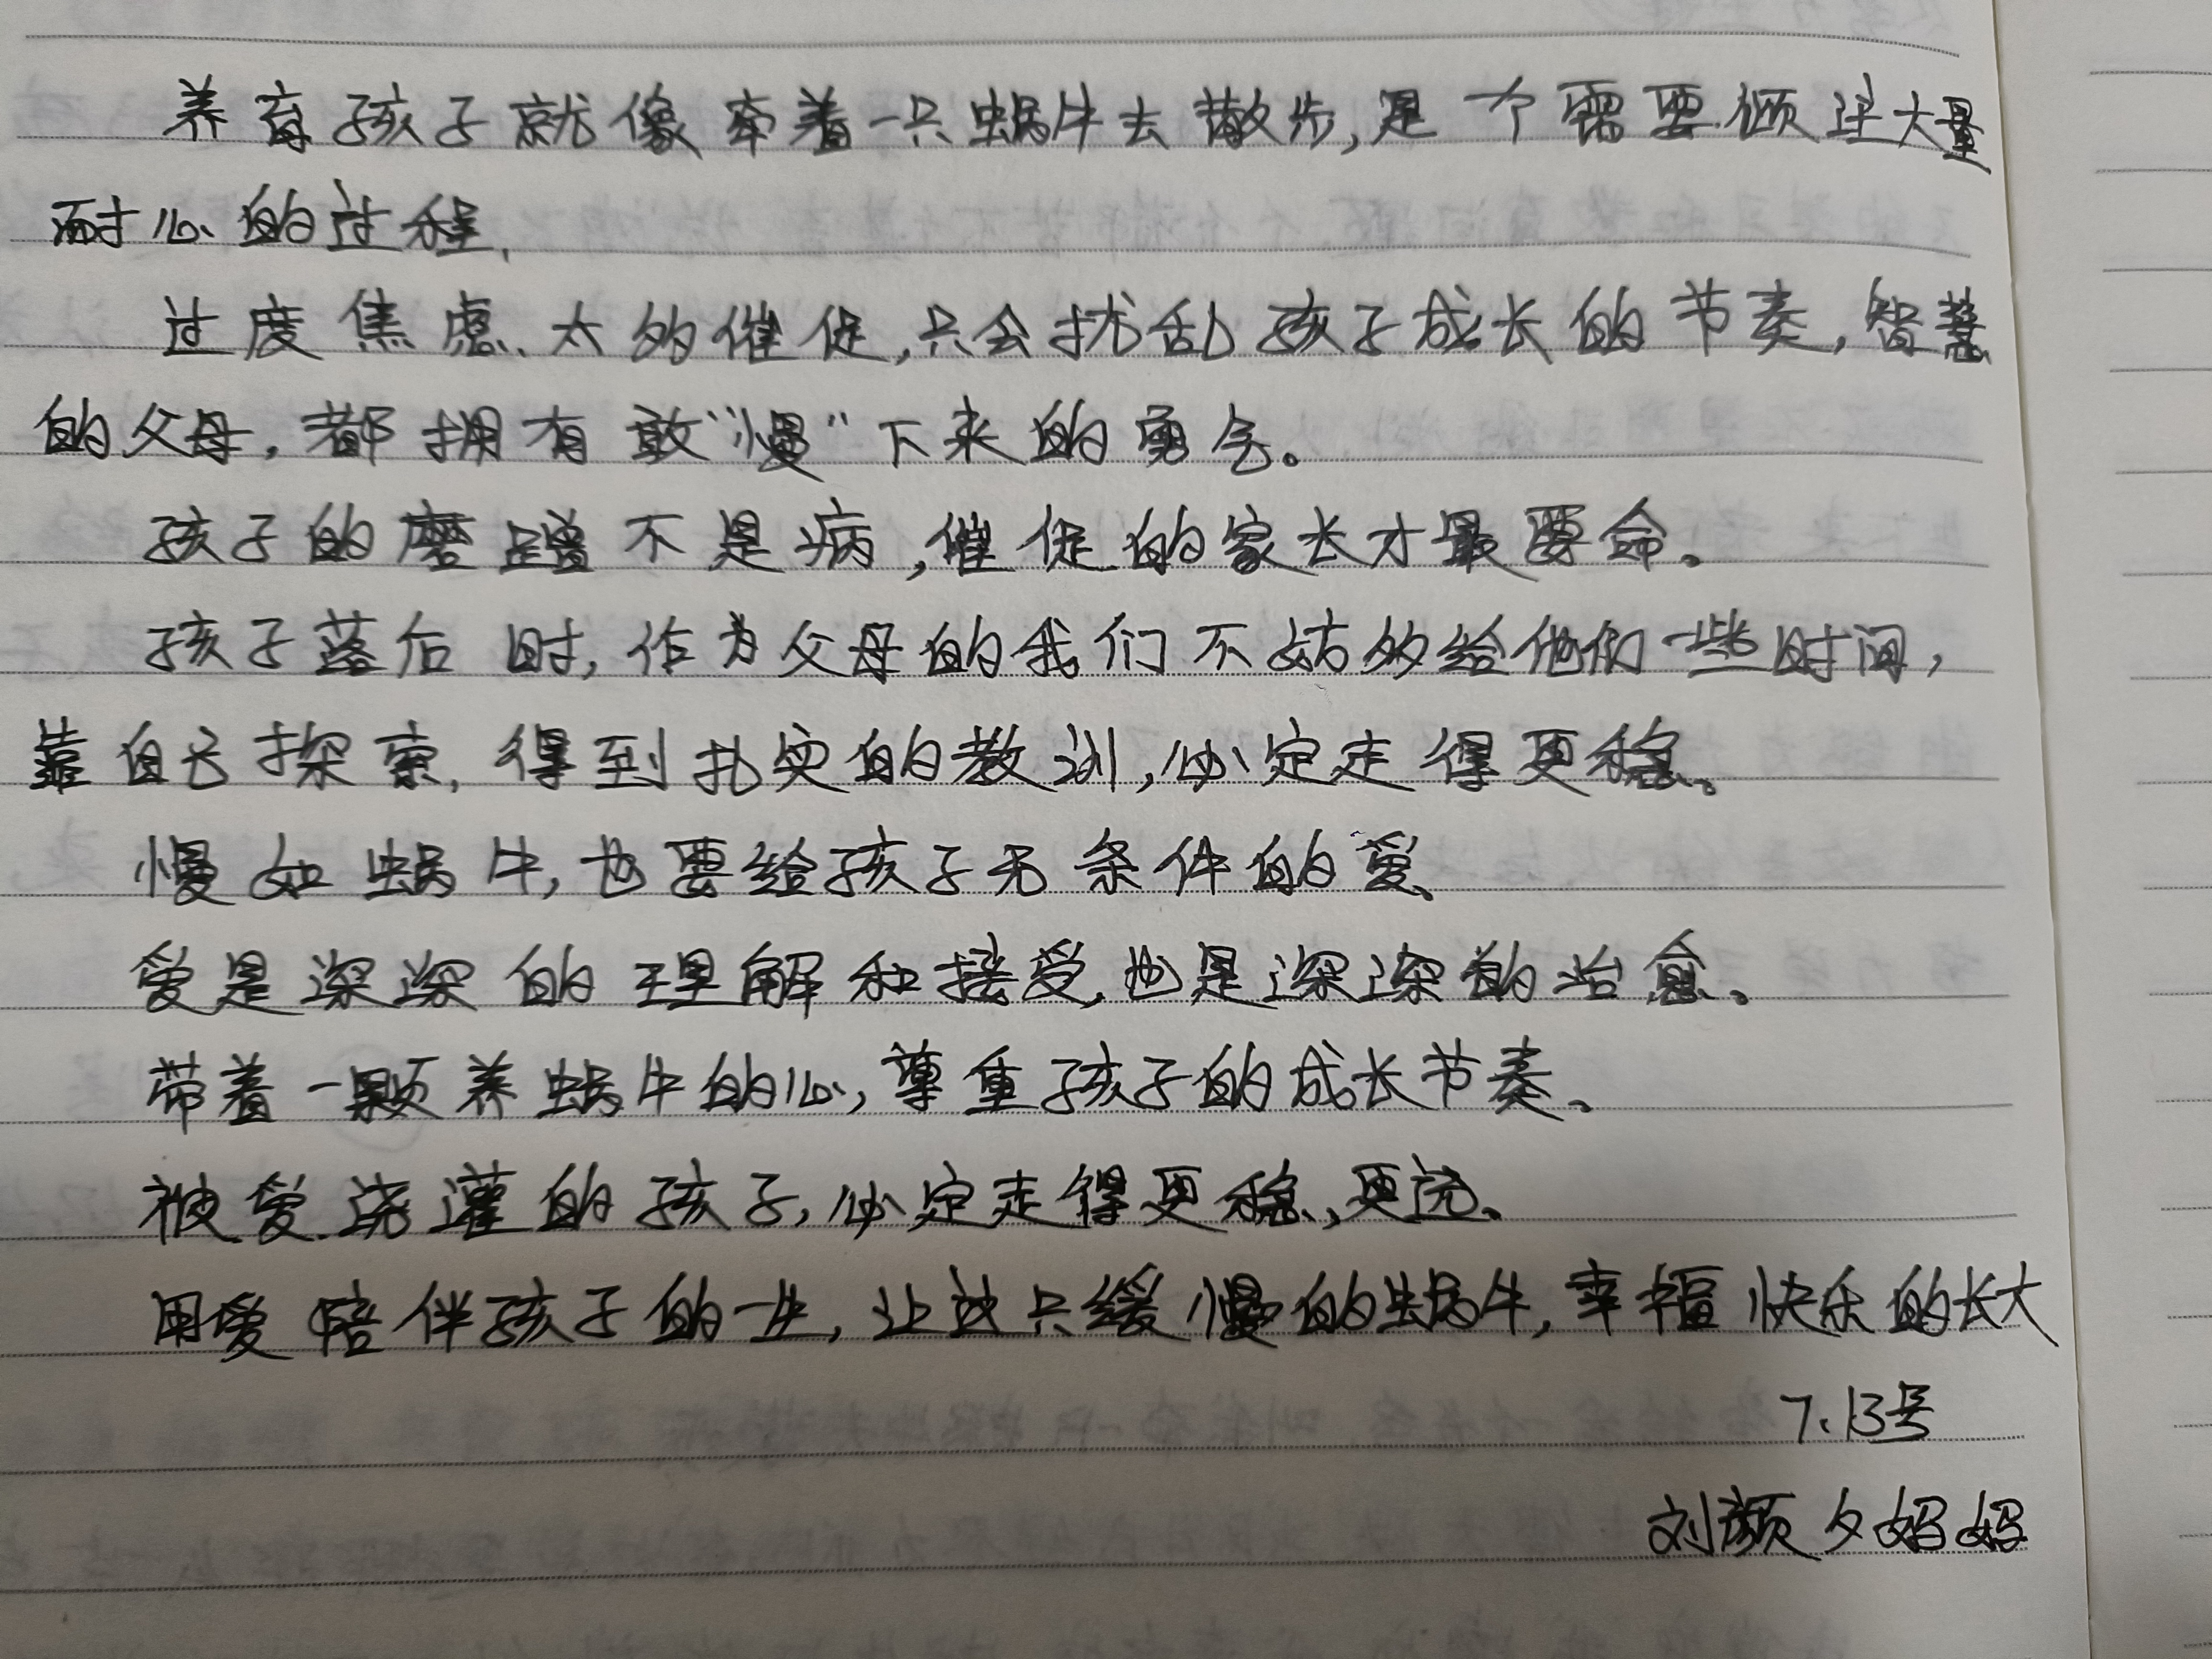 养育孩子就像牵着一只蜗牛去散步,是一个需要倾注大量
耐心的过程.
过度焦虑、太多催促,只会扰乱孩子成长的节奏,智慧
的父母,都拥有敢“慢”下来的勇气。
孩子的磨蹭不是病,催促的家长才最要命。
孩子落后时,作为父母的我们不妨多给他们一些时间,
靠自己探索,得到扎实的教训,必定走得更稳。
慢如蜗牛,也要给孩子无条件的爱、
爱是深深的理解和接受,也是深深的治愈。
带着一颗养蜗牛的心,尊重孩子的成长节奏。
被爱浇灌的孩子,必定走得更稳、更远。
用爱陪伴孩子的一生,让这只缓慢的蜗牛,幸福快乐的长大
7.13号
刘颜夕妈妈